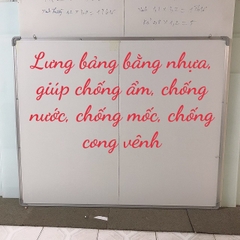 Lưng bảng bằng nhựa,
giúp chống ẩm, chống
nước, chống mốc, chống
cong vênh